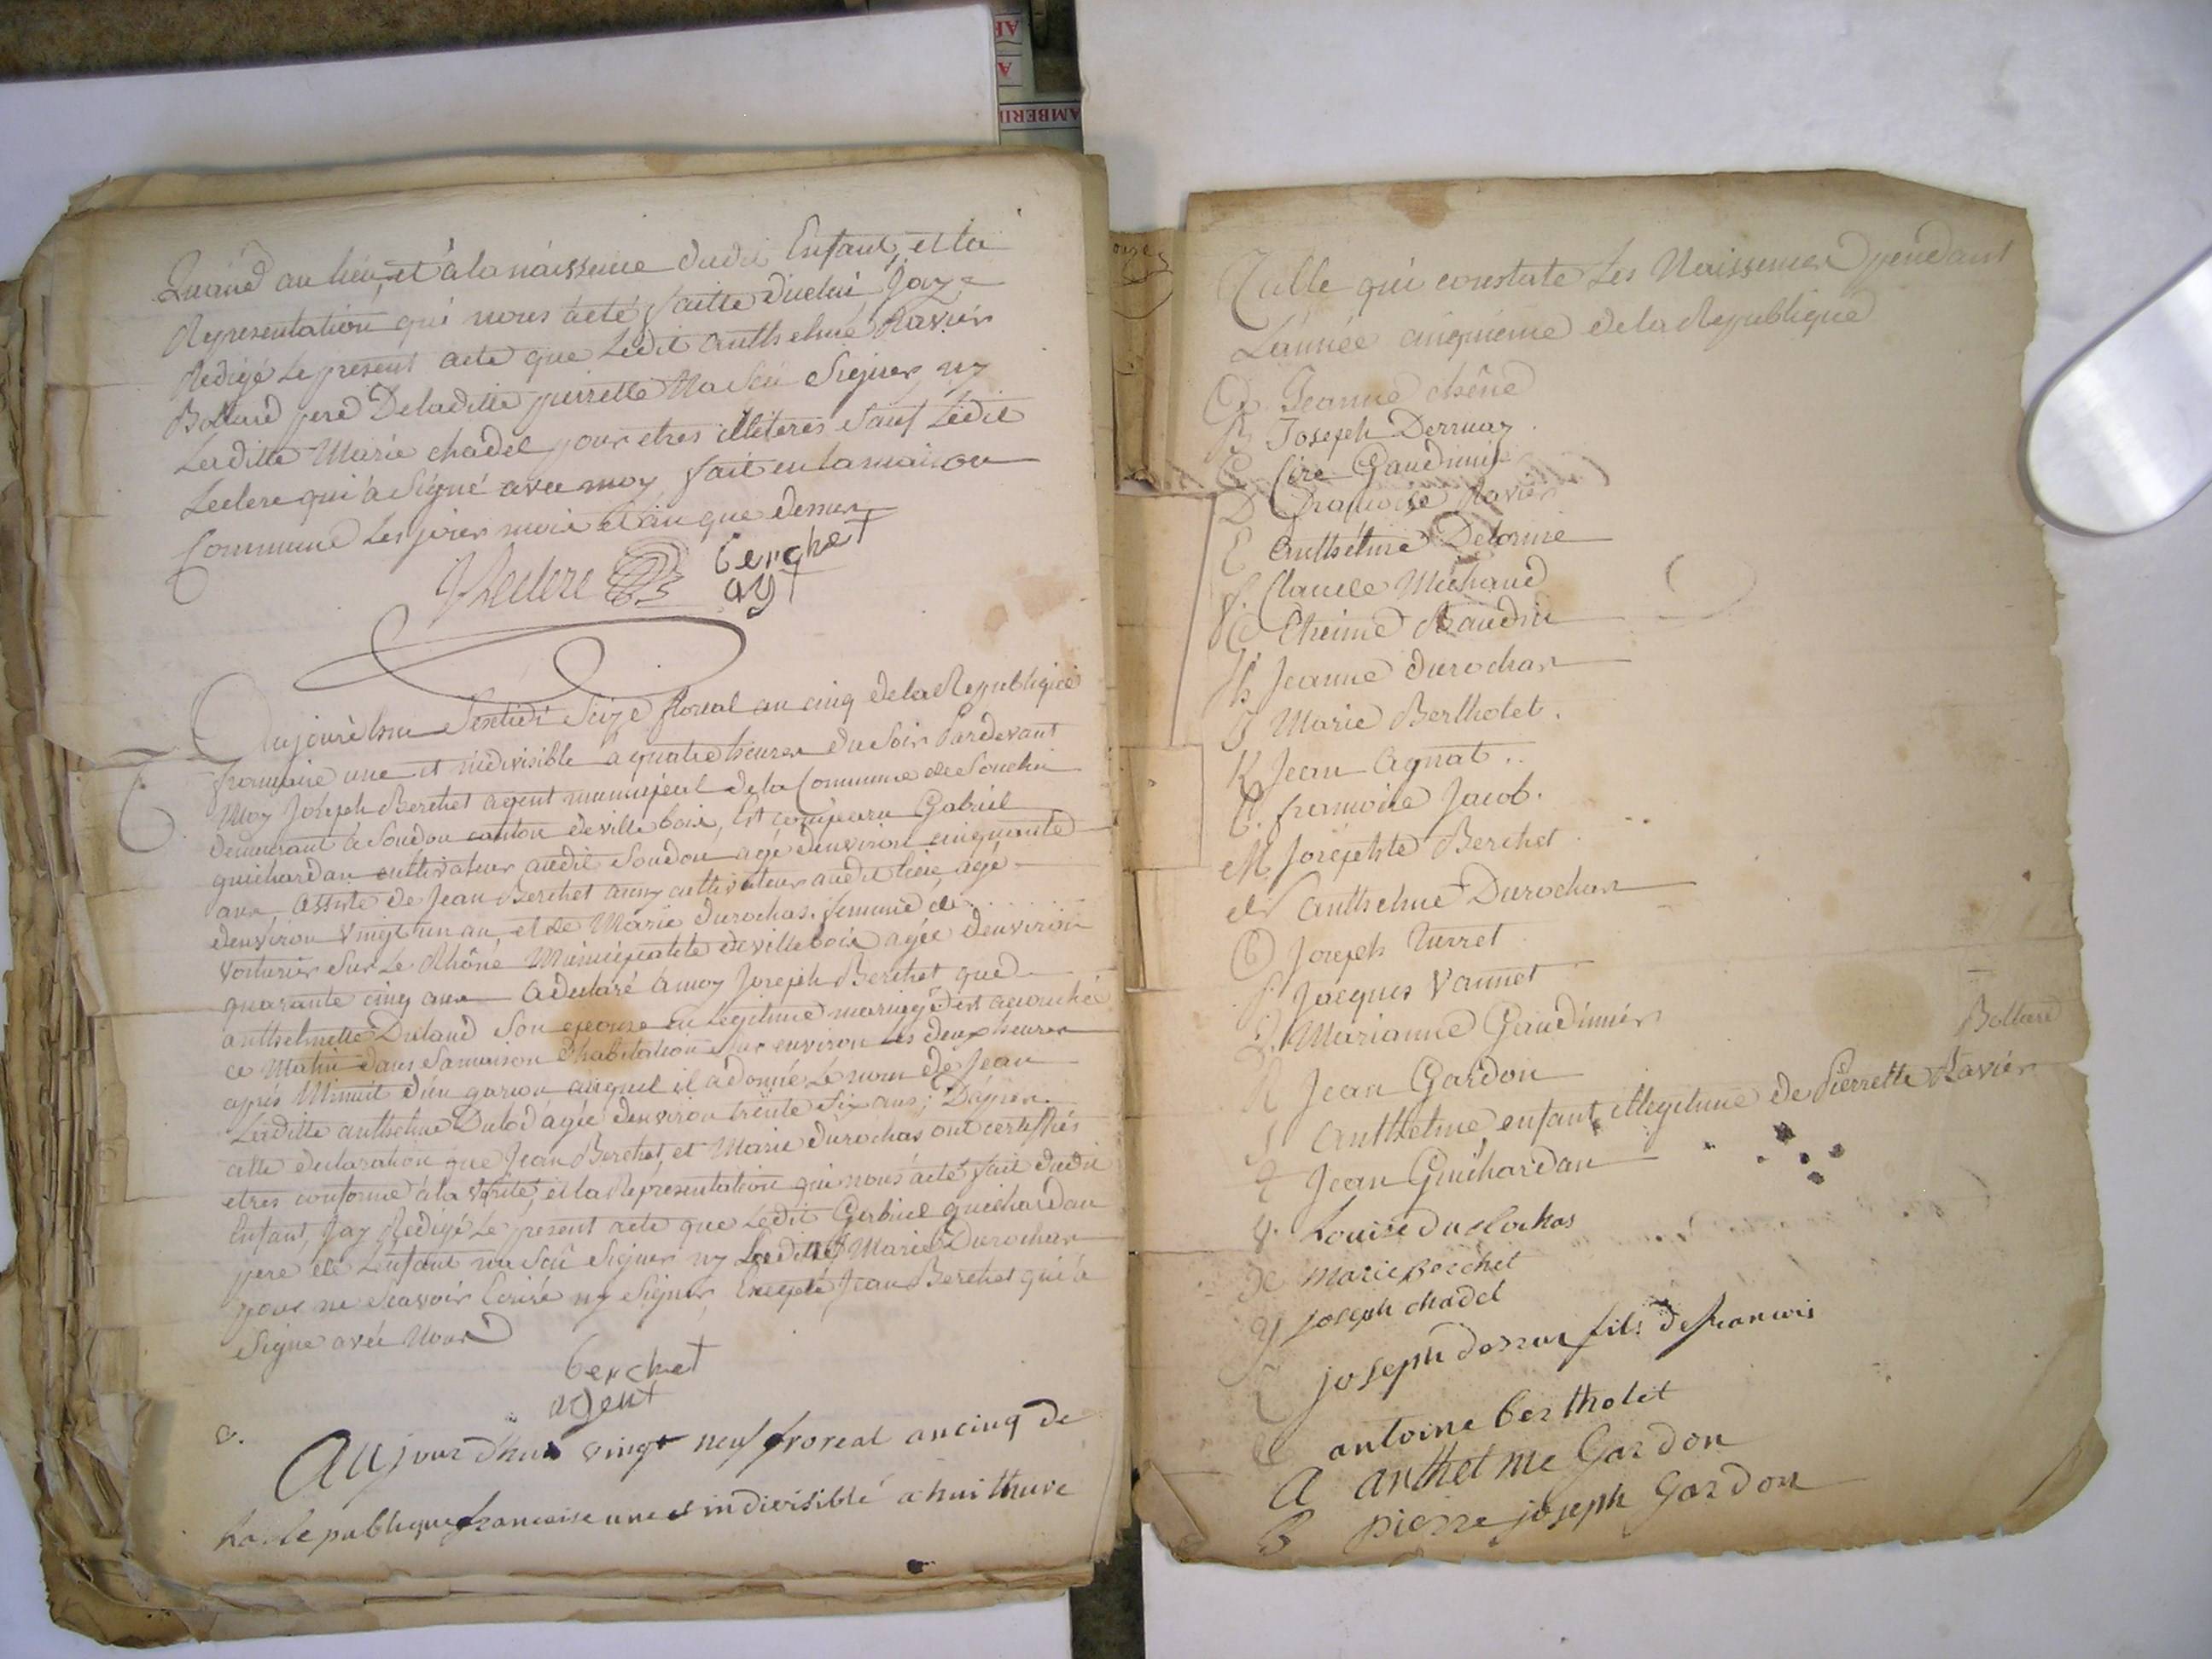 Quand au lieu, et a la naissence dudit Enfant, et la
Representation qui nous àeté faitte dicelui Jay
Redigé Le present acte que Ledit anthelme Ravier
Bollard pere De laditte pierrette Na Scu Signer ny
Laditte Marie chadel pour etres illiteres Sauf Ledit
Leclerc qui à Signé avec moy fait en la maison
Commune Les jour mois et an que dessus
Leclerc berchet
agt
Aujourdhui Sextidi Seize floreal an cinq de la Republique
francaise une et indivisible a quatre heures du Soir Pardevant
Moy Joseph Berchet agent municipal de la Commune de Souclin
demeurant à Soudon canton de villebois, Est comparu Gabriel
guichardan cultivateur audit Soudon agé denviron cinquante
ans, Assisté de Jean Berchet aussy cultivateur audit lieu, agé
denviron Vingt un an et de Marie durochas femme de
Voiturier Sur Le Rhône Municipalité de villebois agée denviron
quarante cinq ans A declaré à moy Joseph Berchet que
anthelmette Dulaud Son epouse en Legitime mariage est acouchée
ce Matin dans Sa maison dhabitation sur environ Les deux heures
aprés Minuit d'un garcon auquel il à donné Le nom de Jean
Laditte anthelme Dulod agée denviron trente Six ans; D'apres
cette declaration que Jean Berchet et Marie durochas ont certiffiés
etres conforme à la Verité, et la Representation qui nous àeté fait dudit
Enfant, Jay Redigé Le present acte que Ledit Gabriel guichardan
pere de Lenfant na Scu Signer ny Laditte Marie Durochas
pour ne Scavoir Ecrire ny Signer, Excepté Jean Berchet qui à
Signe avec Nous
berchet
agent
v.
Aujourdhui vingt neuf froreal an cinq de
La Republique francaise une et indivisible a huit hure
Talle qui constate Les Naissences pendant
L'année cinquieme de la Republique
Jeanne chêne
B Joseph Derruaz
C Gaudinier
D francoise Ravier
E Anthelme Delorme
f. Claude Michaud
Etienne Baudin
h Jeanne durochas
J Marie Bertholet.
K Jean Agnat.
L. francoise Jacob.
M Josephte Berchet
N Anthelme Durochas
O Joseph Turret
P Jacques Vannet
Q Marianne Gaudinier
R Jean Gardon
S Anthelme enfant illegitime de Pierrette Ravier Bollard
t Jean Guichardan
v. Louise durochas
x marie berchet
y joseph chadel
Z joseph derrua fils de francois
& antoine bertholet
A anthelme Gardon
B pierre joseph Gardon